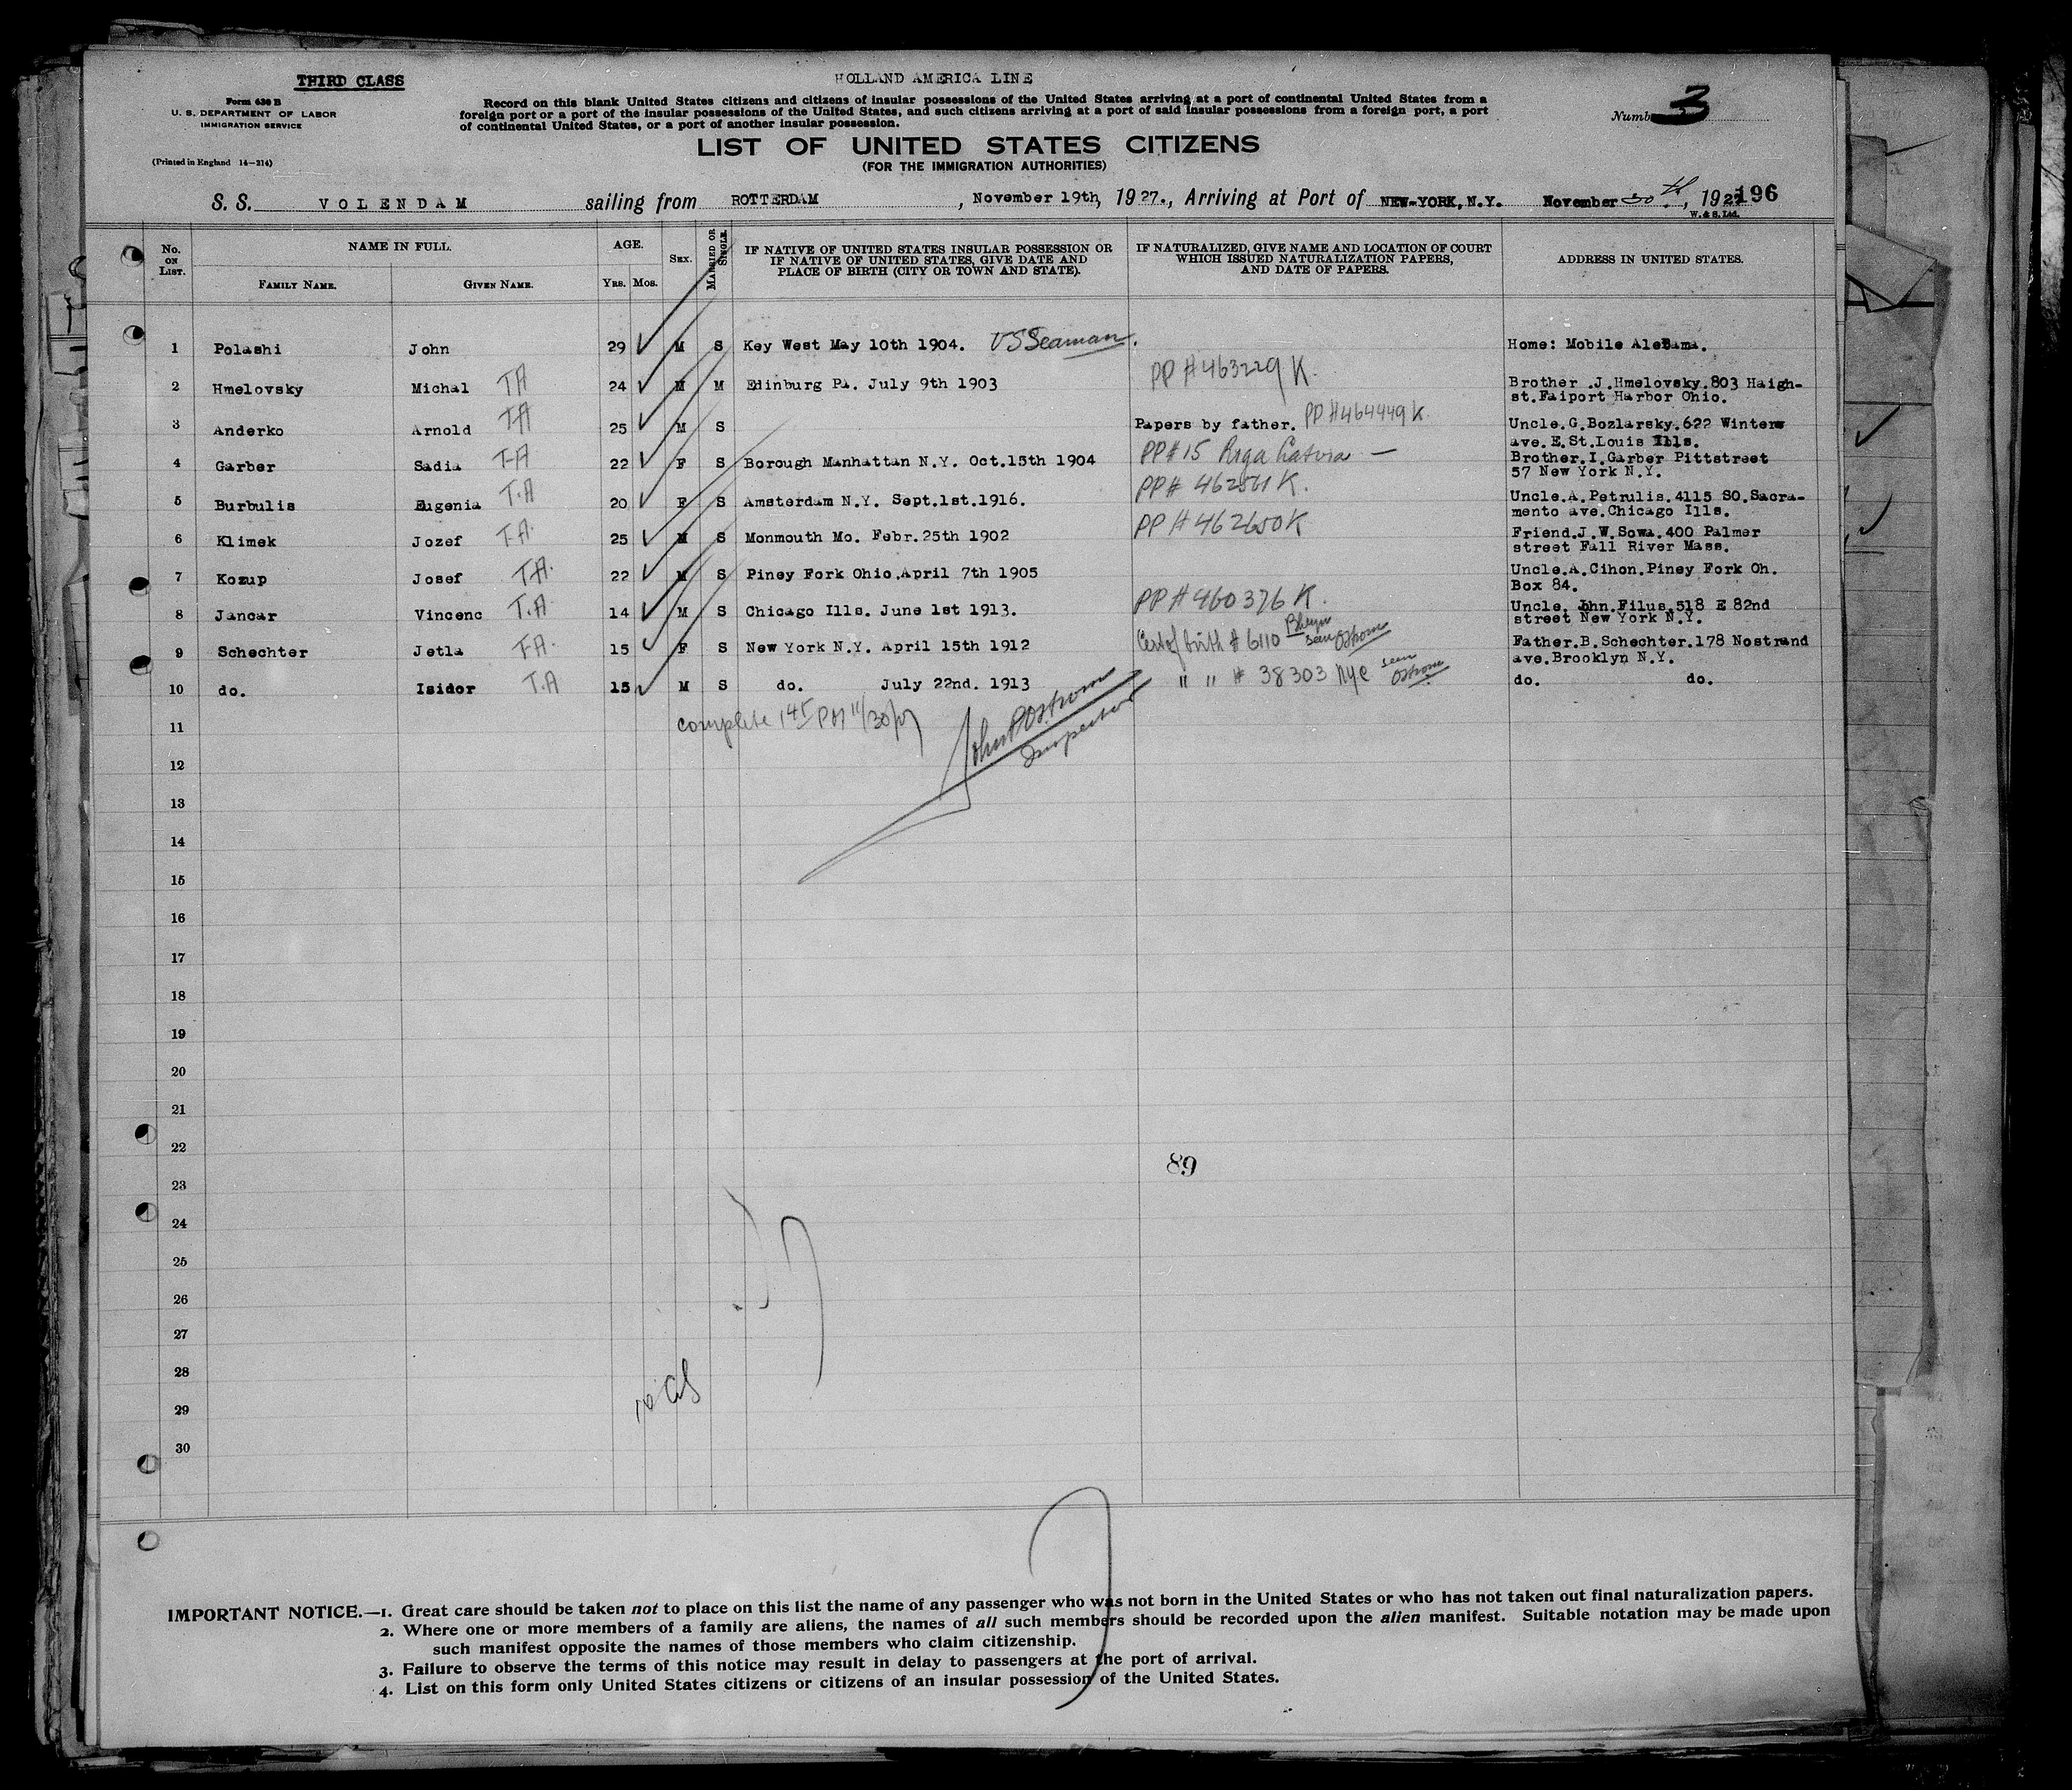 THIRD CLASS
HOLLAND AMERICA LINE
Form 630 B
U. S. DEPARTMENT OF LABOR
IMMIGRATION SERVICE
(Printed in England 14—214)
Record on this blank United States citizens and citizens of insular possessions of the United States arriving at a port of continental United States from a
foreign port or a port of the insular possessions of the United States, and such citizens arriving at a port of said insular possessions from a foreign port, a port
of continental United States, or a port of another insular possession.
Numb 3
LIST OF UNITED STATES CITIZENS
(FOR THE IMMIGRATION AUTHORITIES)
S. S. VOLENDAM sailing from ROTTERDAM, November 19th, 1927., Arriving at Port of NEW-YORK, N.Y. November 30th, 1927 196
W. & S. Ltd.
No. ON LIST. NAME IN FULL. AGE. SEX. MARRIED OR SINGLE. IF NATIVE OF UNITED STATES INSULAR POSSESSION OR IF NATIVE OF UNITED STATES, GIVE DATE AND PLACE OF BIRTH (CITY OR TOWN AND STATE). IF NATURALIZED, GIVE NAME AND LOCATION OF COURT WHICH ISSUED NATURALIZATION PAPERS, AND DATE OF PAPERS. ADDRESS IN UNITED STATES.
FAMILY NAME. GIVEN NAME. YRS. MOS.
1 Polashi John 29 M S Key West May 10th 1904. US Seaman. Home: Mobile AleBama.
2 Hmelovsky Michal TA 24 M M Edinburg Pa. July 9th 1903 PP #463229 K. Brother .J.Hmelovsky.803 Haigh-
st.Faiport Harbor Ohio.
3 Anderko Arnold TA 25 M S Papers by father. PP #464449 K Uncle.G.Bozlarsky.622 Winters
ave.E.St.Louis Ills.
4 Garber Sadia TA 22 F S Borough Manhattan N.Y. Oct.15th 1904 PP #15 Riga Latvia — Brother.I.Garber Pittstreet
57 New York N.Y.
5 Burbulis Eugenia T.A 20 F S Amsterdam N.Y. Sept.1st.1916. PP # K. Uncle.A.Petrulis.4115 SO.Sacra-
mento ave.Chicago Ills.
6 Klimek Jozef TA. 25 M S Monmouth Mo. Febr.25th 1902 PP #462650K Friend.J.W.Sowa.400 Palmer
street Fall River Mass.
7 Kozup Josef TA. 22 M S Piney Fork Ohio.April 7th 1905 Uncle.A.Cihon.Piney Fork Oh.
Box 84.
8 Jancar Vincenc T.A 14 M S Chicago Ills. June 1st 1913. PP #460376 K. Uncle. John.Filus.518 E 82nd
street New York N.Y.
9 Schechter Jetla TA. 15 F S New York N.Y. April 15th 1912 Cert of birth # 6110 Bklyn seen Ostrom Father.B.Schechter.178 Nostrand
ave.Brooklyn N.Y.
10 do. Isidor T.A 15 M S do. July 22nd. 1913 " " # 38303 NYC seen Ostrom do. do.
11 complete 145 PM 11/30/27
John P Ostrom
Inspector
12
13
14
15
16
17
18
19
20
21
22
89
23
24
25
26
27
28
29
30
IMPORTANT NOTICE.—1. Great care should be taken not to place on this list the name of any passenger who was not born in the United States or who has not taken out final naturalization papers.
2. Where one or more members of a family are aliens, the names of all such members should be recorded upon the alien manifest. Suitable notation may be made upon
such manifest opposite the names of those members who claim citizenship.
3. Failure to observe the terms of this notice may result in delay to passengers at the port of arrival.
4. List on this form only United States citizens or citizens of an insular possession of the United States.